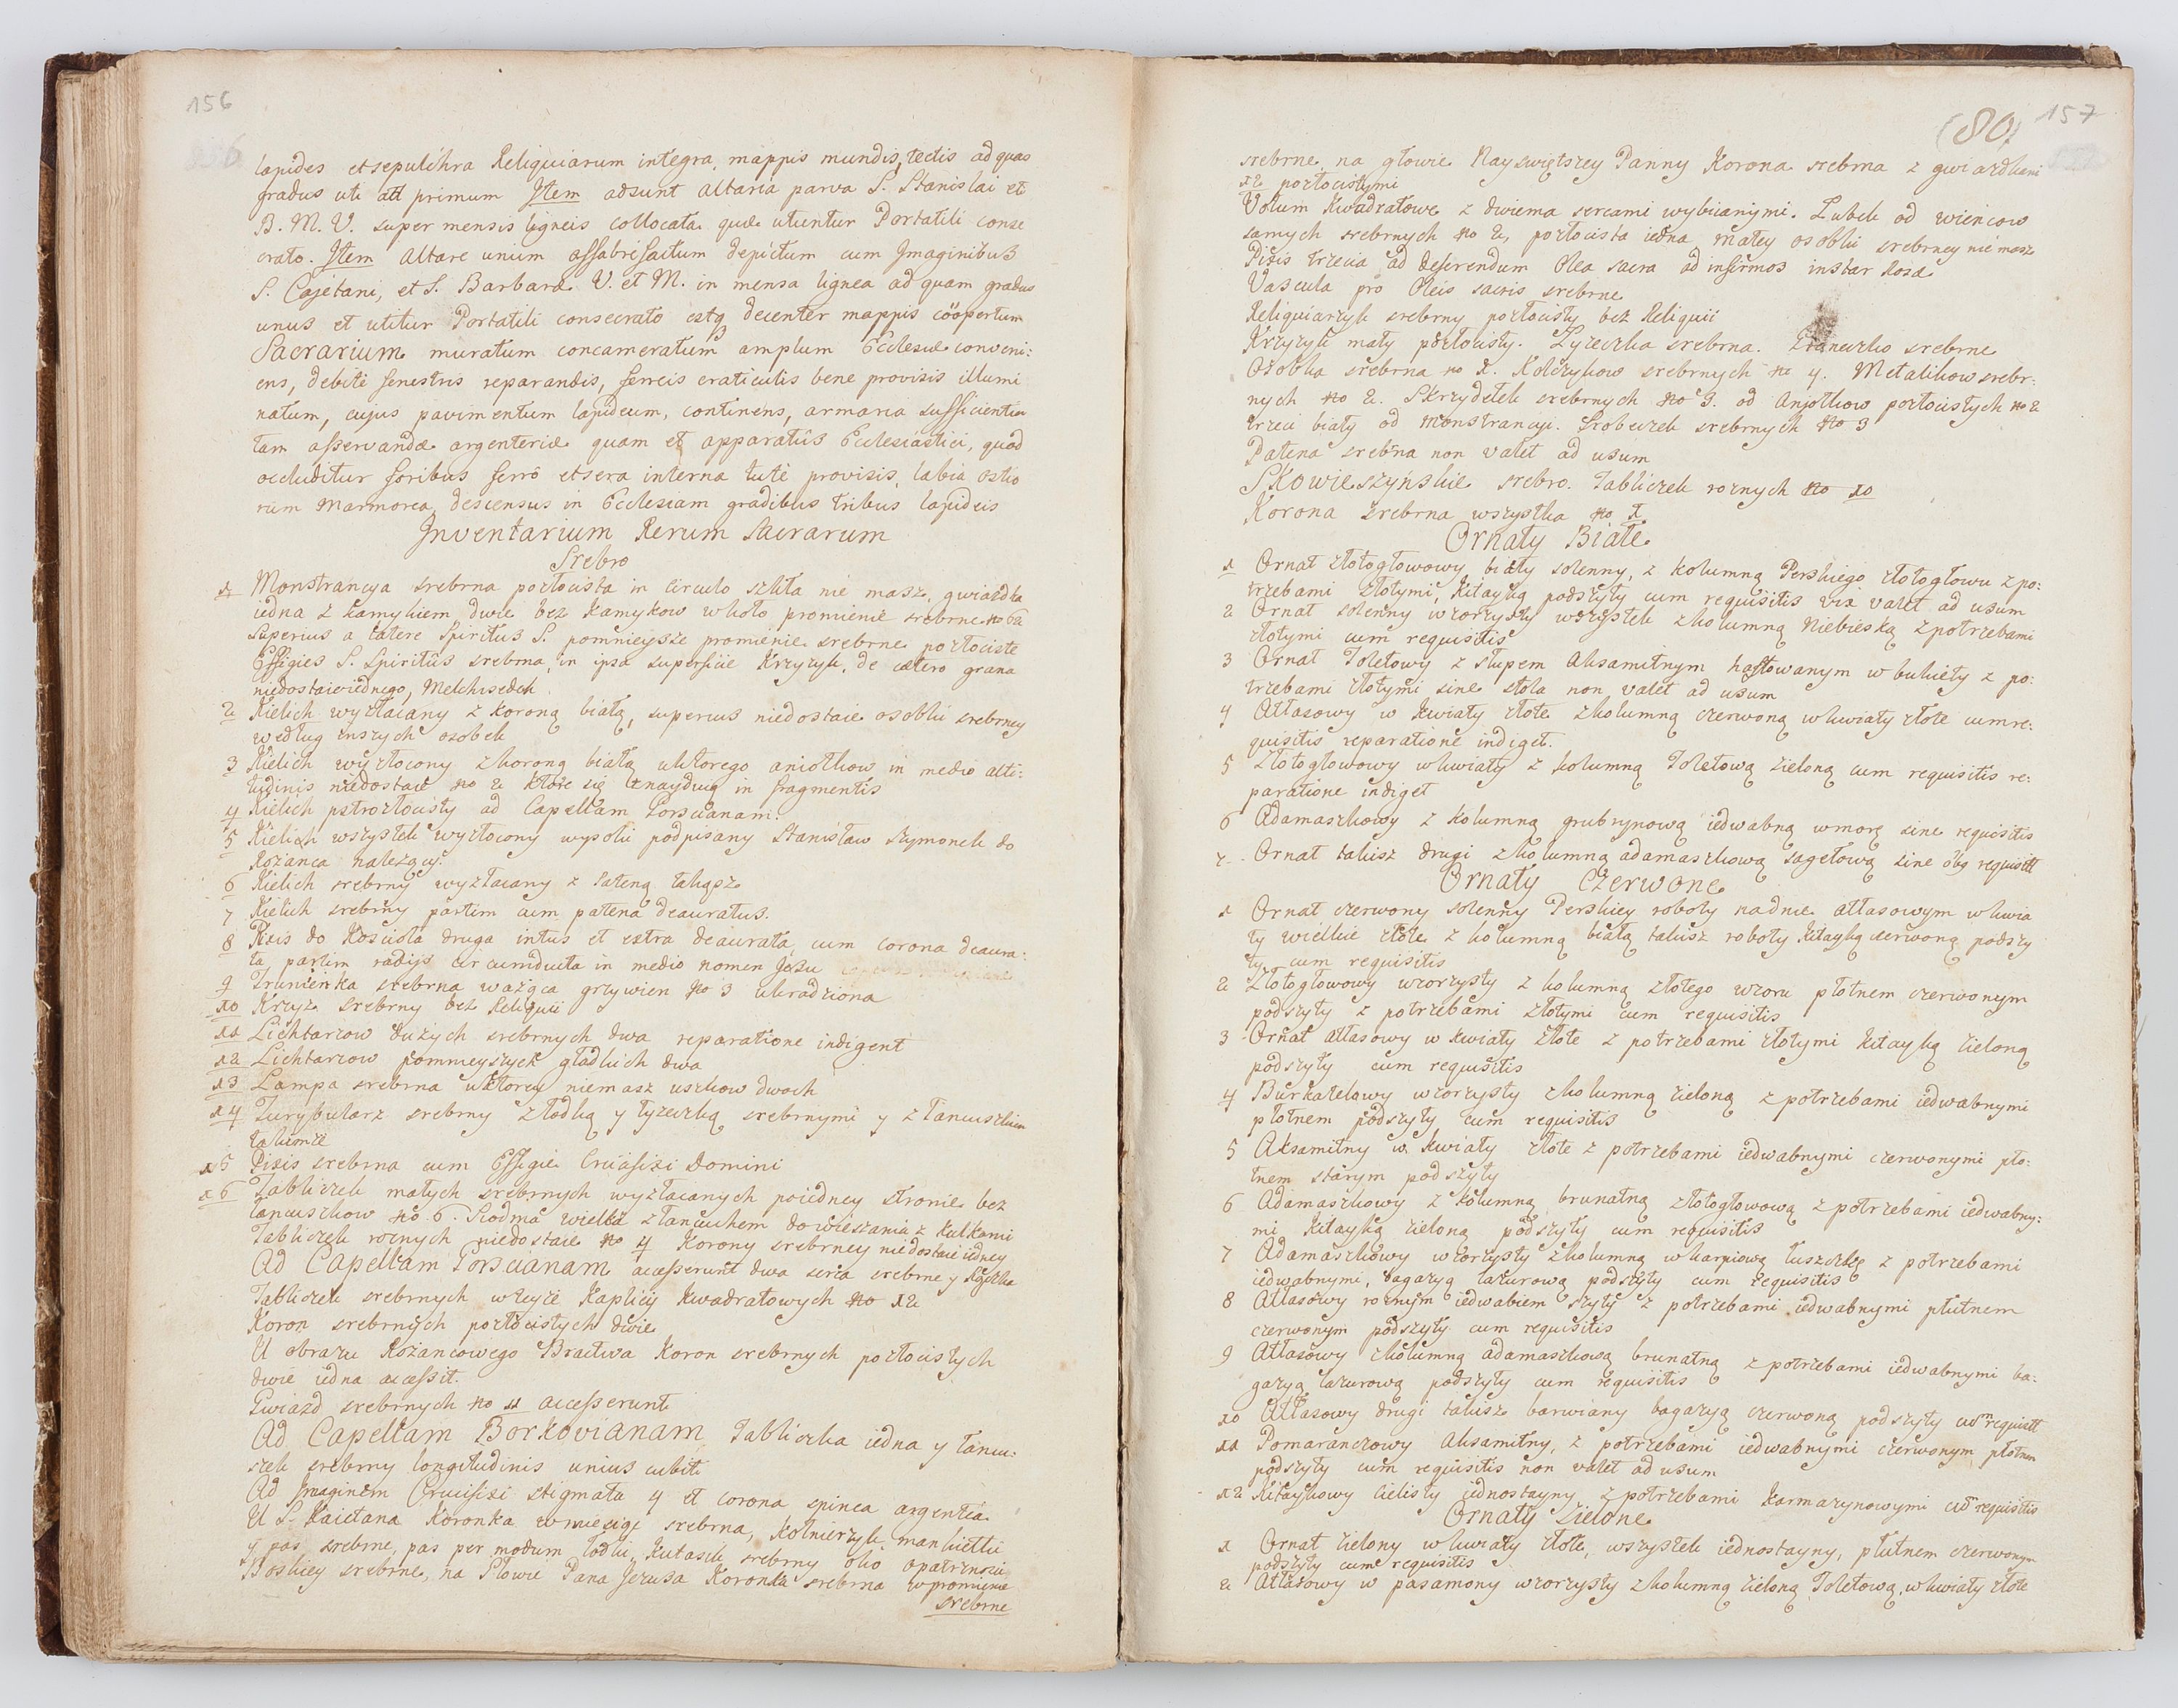 156
lapides et sepulchra Reliquiarum integra, mappis mundis tectis ad quas
gradus uti ad primum Item adsunt altaria parva S. Stanislai et
B. M. V. super mensis ligneis collocata quæ utuntur Portatili conse
crato. Item Altare unum affabrefactum depictum cum Imaginibus
S. Cajetani, et S. Barbaræ V. et M. in mensa lignea ad quam gradus
unus et utitur Portatili consecrato estq decenter mappis coopertum
Sacrarium muratum concameratum amplum Ecclesiæ conveni:
ens, debite fenestris reparandis, ferreis craticulis bene provisis illumi
natum, cujus pavimentum lapideum, continens, armaria sufficientia
tam asservandæ argenteriæ quam et apparatûs Ecclesiastici, quod
occluditur foribus ferrô et sera interna tutè provisis, labia ostio
rum Marmorea, descensus in Ecclesiam gradibus tribus lapideis
Inventarium Rerum Sacrarum
Srebro
1 Monstrancya srebrna pozłocista in circulo szkła nie masz, gwiazdka
iedna z kamykiem, dwie bez kamykow wkoło promienie srebrne
Superius a latere Spiritus S. pomnieysze promienie srebrne pozłociste
Effigies S. Spiritûs srebrna, in ipsa superficie Krzyzyk, de cætero grana
niedostaie iednego, Melchisedek
2 Kielich wyzłacany z koroną białą, superius niedostaie osobki srebrney
według inszych osobek
3 Kielich wyzłocony z koroną białą uktorego aniołkow in medio alti:
tudinis niedostaie No 2 ktore się znayduią in fragmentis
4 Kielich pstrozłocisty ad Capellam Porscianam.
5 Kielich wszystek wyzłocony wysoki podpisany Stanisław Szymonek do
Rozanca nalezący.
6 Kielich srebrny wyzłacany z Pateną takąsz
7 Kielich srebrny partim cum patena deauratus.
8 Pixis do Kościoła druga intus et extra deaurata, cum corona deaura:
ta partim radijs circumducta in medio nomen Jesu
9 Trunienka srebrna waząca grzywien No 3 ukradziona
10 Krzyz srebrny bez Reliquii
11 Lichtarzow duzych srebrnych dwa reparatione indigent
12 Lichtarzow pomnieyszych gładkich dwa
13 Lampa srebrna uktorey niemasz uszkow dwoch
14 Turybularz srebrny z łodką y łyzeczką srebrnymi y z łancuszkiem
takimze
15 Pixis srebrna cum Effigie Crucifixi Domini
16 Tabliczek małych srebrnych wyzłacanych poiedney stronie bez
łancuszkow No 6. Siodma wielka z łancuchem do wieszania z kulkami
Tabliczek roznych niedostaie No 4 Korony srebrney niedostaie iedney
Ad Capellam Porscianam accesserunt dwa serca srebrne y
Tabliczek srebrnych wteyze Kaplicy kwadratowych No 12
Koron srebrnych pozłocistych dwie
U obrazu Rozancowego Bractwa Koron srebrnych pozłocistych
dwie iedna accessit.
Gwiazd srebrnych No 11 accesserunt
Ad Capellam Borkovianam Tabliczka iedna y łancu:
szek srebrny longitudinis unius cubiti
Ad Imaginem Crucifixi stigmata 4 et corona spinea argentea
U S. Kaietana Koronka srebrna, kołnierzyk, mankietki
y pas srebrne, pas per modum łodki, kutasek srebrny oko opatrznosci
Boskiey srebrne, na Głowie Pana Jezusa Koronka srebrna wpromienie
srebrne
(80) 157
srebrne na głowie Nayswiętszey Panny Korona srebrna z gwiazdkami
12 pozłocistymi
Votum Kwadratowe z dwiema sercami wybiianymi. Lubek od wiencow
samych srebrnych No 2, pozłocista iedna małey osobki srebrney niemasz
Pixis trzecia ad deferendum Olea sacra ad infirmos instar Rosæ
Vascula pro Oleis sacris srebrne
Reliquiarzyk srebrny pozłocisty bez Reliquii
Krzyzyk mały pozłocisty. Łyzeczka srebrna. srebrne
Osobka srebrna No 1. Kolczykow srebrnych No 4. Metalikow srebr:
nych No 2. Skrzydełek srebrnych No 9. od Anjołkow pozłocistych No 2
trzeci biały od Monstrancyi. Srobeczek srebrnych No 3
Patena srebrna non valet ad usum
Skowieszyńskie srebro. Tabliczek roznych No 10
Korona srebrna wszystka No 1
Ornaty Białe
1 Ornat złotogłowowy, biały solenny, z kolumną Perskiego złotogłowu z po:
trzebami złotymi, kitayką podszyty cum requisitis vix valet ad usum
2 Ornat solenny wzorzysty wszystek z kolumną Niebieską z potrzebami
złotymi cum requisitis
3 Ornat Toletowy z słupem Aksamitnym haftowanym w bukiety z po:
trzebami złotymi sine stola non valet ad usum
4 Atłasowy w kwiaty złote z kolumną czerwoną w kwiaty złote cum re:
quisitis reparatione indiget.
5 Złotogłowowy w kwiaty z kolumną Toletową zieloną cum requisitis re:
paratione indiget
6 Adamaszkowy z kolumną grubrynową iedwabną wmorę sine requisitis
7 Ornat takisz drugi z kolumną adamaszkową sagetową sine requisitt
Ornaty Czerwone
1 Ornat czerwony solenny Perskiey roboty nadnie atłasowym w kwia
ty wielkie złote z kolumną białą takisz roboty kitayką czerwoną podszy
ty cum requisitis
2 Złotogłowowy wzorzysty z kolumną złotego wzoru płotnem czerwonym
podszyty z potrzebami złotymi cum requisitis
3 Ornat atłasowy w kwiaty złote z potrzebami złotymi kitayką zieloną
podszyty cum requisitis
4 Burkatelowy wzorzysty z kolumną zieloną z potrzebami iedwabnymi
płotnem podszyty cum requisitis
5 Aksamitny w kwiaty złote z potrzebami iedwabnymi czerwonymi pło:
tnem starym podszyty
6 Adamaszkowy z kolumną brunatną złotogłowową z potrzebami iedwabny:
mi kitayką zieloną podszyty cum requisitis
7 Adamaszkowy wzorzysty z kolumną w karpiową łuszczkę z potrzebami
iedwabnymi, bagazyą lazurową podszyty cum requisitis
8 Atłasowy roznym iedwabiem szyty z potrzebami iedwabnymi płutnem
czerwonym podszyty cum requisitis
9 Atłasowy z kolumną adamaszkową brunatną z potrzebami iedwabnymi ba:
gazyą lazurową podszyty cum requisitis
10 Atłasowy drugi takisz barwiany bagazyą czerwoną podszyty cum requisitt
11 Pomaranczowy Aksamitny, z potrzebami iedwabnymi czerwonym płotnem
podszyty cum requisitis non valet ad usum
12 Kitaykowy cielisty iednostayny z potrzebami karmazynowymi cum requisitis
Ornaty Zielone
1 Ornat zielony w kwiaty złote, wszystek iednostayny, płutnem czerwonym
podszyty cum requisitis
2 Atłasowy w pasamony wzorzysty z kolumną zieloną Toletową, w kwiaty złote